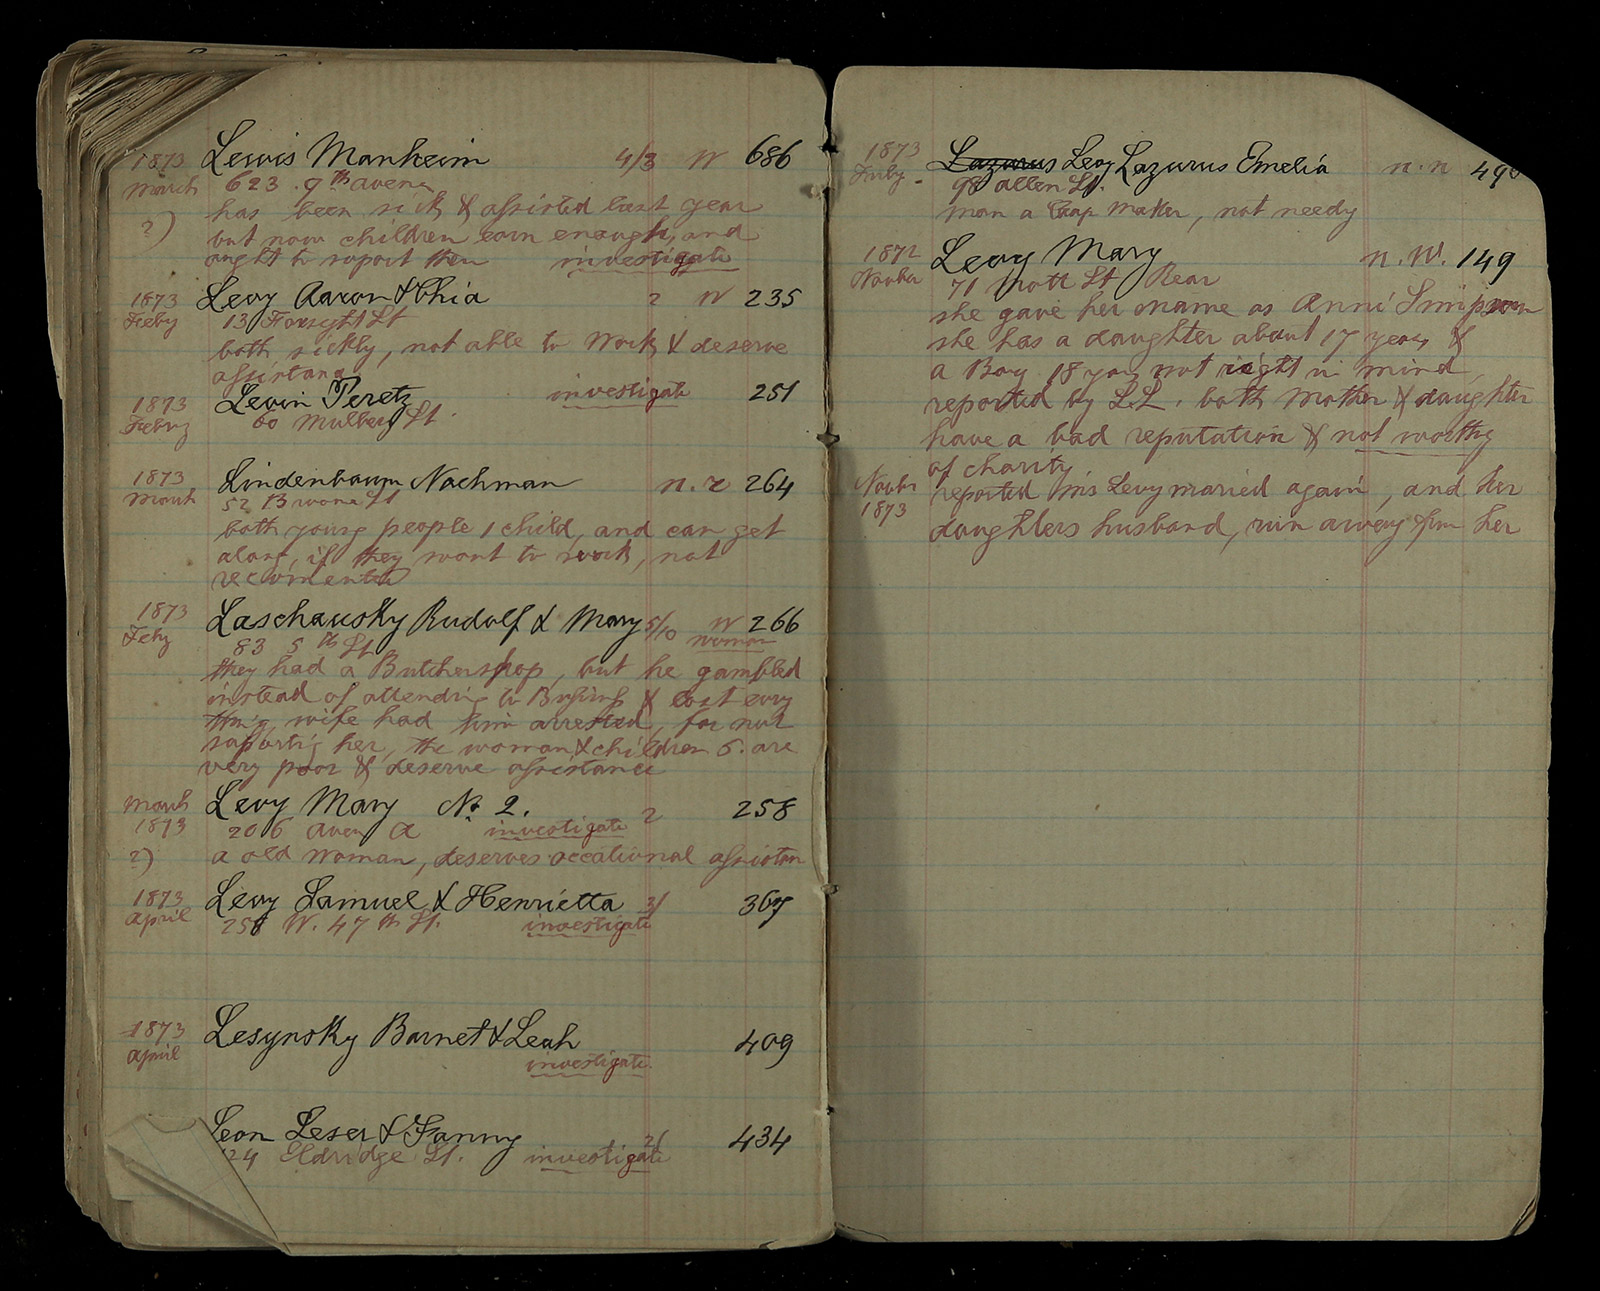 1873 Lewis Manheim 4/3 W 686
March 623 . 9th aven
?) has been sick & assisted last year
but now children earn enough, and
ought to suport then investigate
1873 Levy Aaron & Chia 2 W 235
Feby 13 Forsyht St
both sickly, not able to Work & deserve
assistanc
1873 Levin Peretz investigate 251
Febury 60 Mulbery St.
1873 Lindenbaum Nachman n. r 264
March 52 St
both young people 1 child, and can get
along, if they want to work, not
recomented
1873 Laschausky Rudolf & Mary 5/10 W 266
Feby 83 5th St woman
they had a Butchershop, but he gambled
instead of attending to Busines & lost evry
thing wife had him arrested, for not
suporting her, the woman & children 6. are
very poor & deserve assistance
March Levy Mary No 2. 2 258
1873 206 aven A investigate
?) a old woman, deserves occational assistan
1873 Levy Samuel & Henrietta 3/ 367
April 258 W. 47th St. investigate
1873 Lesynsky Barnet & Leah 409
April investigate
Leon Leser & Fanny 2/ 434
24 Eldridge St. investigate
1873 Lazarus Levy Lazurus Emelia n. n 490
Feby. 98 allen St.
man a Cap maker, not needy
1872 Levy Mary n. W. 149
Novber 71 Mott St Rear
she gave her name as Anni Simpson
she has a daughter about 17 years &
a Boy 18 year not right in mind
reported by L.L. both Mother & daughter
have a bad reputation & not worthy
of charity
Novbr reported Mis Levy maried again, and her
1873 daughters husband, run away from her